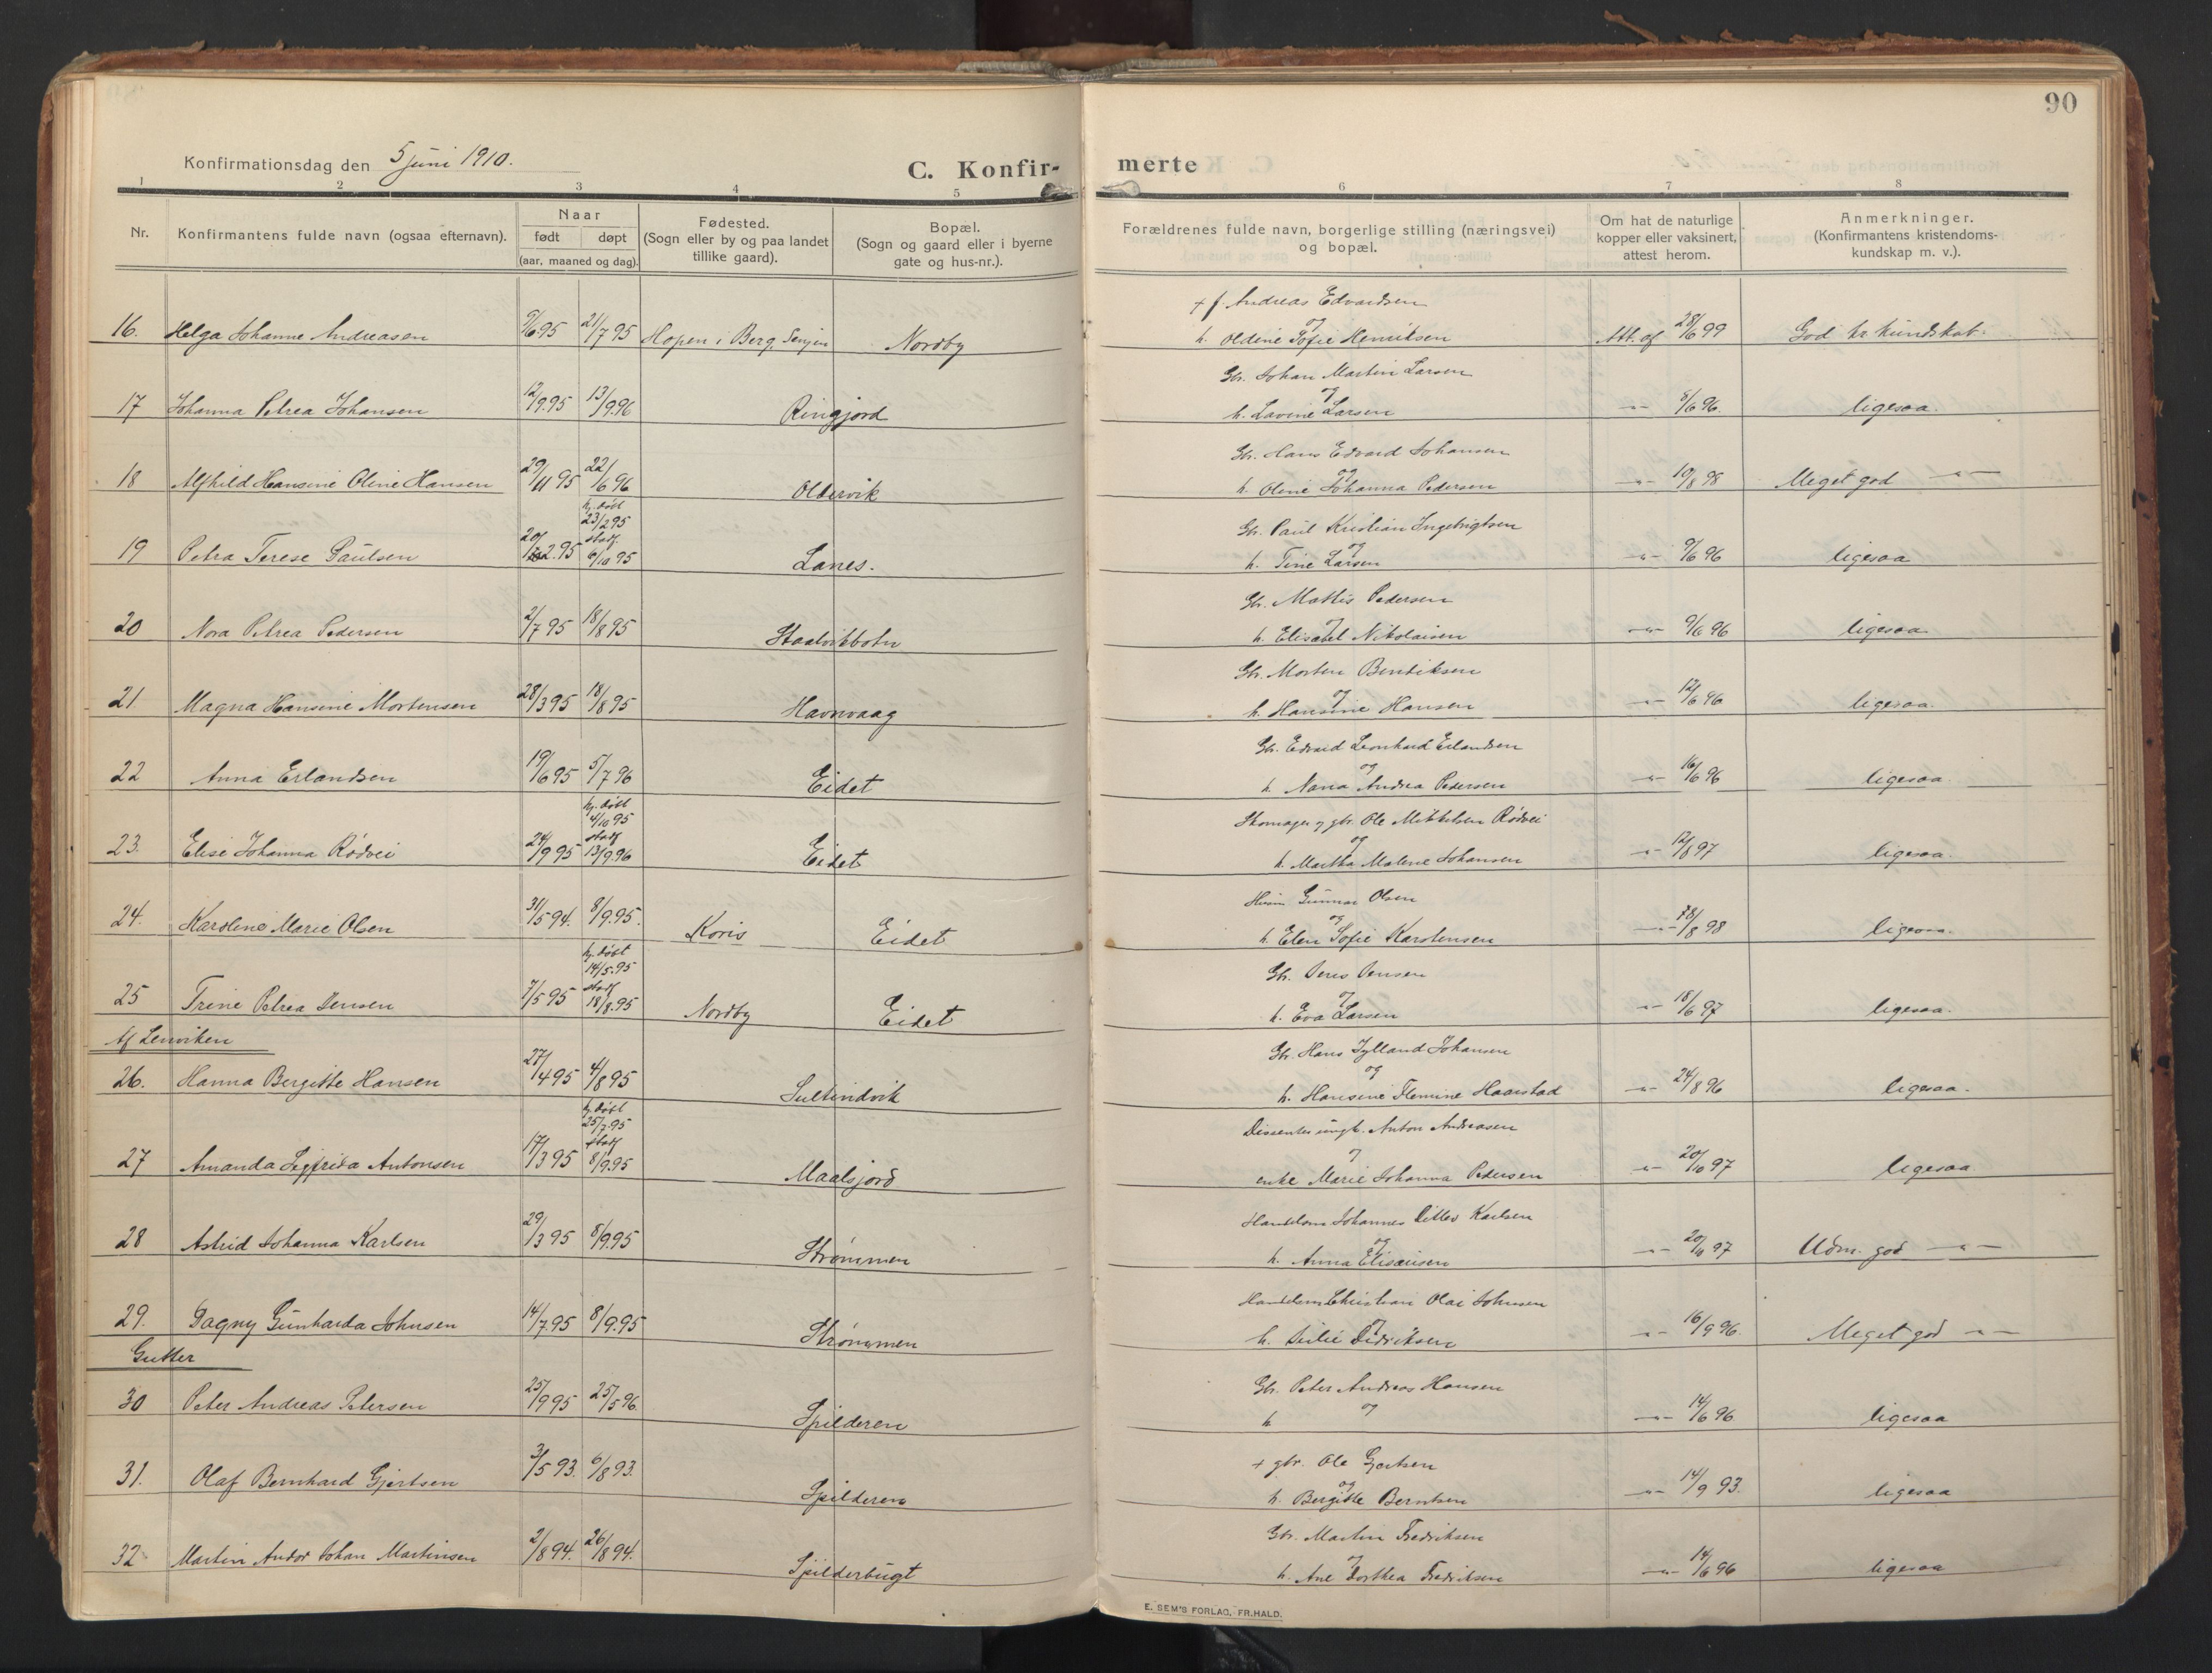 90
Konfirmationsdag den 5 juni 1910.
C. Konfir-
merte
1 2 3 4 5 6 7 8
Nr.
Konfirmantens fulde navn (ogsaa efternavn).
Naar
født døpt
(aar, maaned og dag).
Fødested.
(Sogn eller by og paa landet
tillike gaard).
Bopæl.
(Sogn og gaard eller i byerne
gate og hus-nr.).
Forældrenes fulde navn, borgerlige stilling (næringsvei)
og bopæl.
Om hat de naturlige
kopper eller vaksinert,
attest herom.
Anmerkninger.
(Konfirmantens kristendoms-
kundskap m. v.).
+ f. Andreas Edvardsen
og
16. Helga Johanne Andreasen 9/6 95 21/7 95 Hopen i Berg, Senjen Nordby h. Oldine Sofie Henriksen Att. af 28/6 99 God kr. kundskab.
Gbr. Johan Martin Larsen
og
17 Johanna Petrea Johansen 12/9.95 13/9.96 Ringjord h. Lavine Larsen -"- 8/6 96. ligesaa.
Gbr. Hans Edvard Johansen
og
18 Alfhild Hansine Oline Hansen 29/11 95 22/6 96 Oldervik h. Oline Johanna Pedersen -"- 10/8 98 Meget god -"-
hj. døbt
23/2 95
stadf.
Gbr. Paul Kristian Ingebrigtsen
og
19 Petra Terese Paulsen 20/2.95 6/10 95 Lanes. h. Tine Larsen -"- 9/6 96 ligesaa
Gbr. Mathis Pedersen
og
20 Nora Petrea Pedersen 2/7 95 18/8 95 Staalvikbotn h. Elisabel Nikolaisen -"- 9/6 96 ligesaa
Gbr. Morten Bendiksen
og
21 Magna Hansine Mortensen 28/3 95 18/8 95 Havnvaag h. Hansine Hansen -"- 12/6 96 ligesaa.
Gbr. Edvard Leonhard Erlandsen
og
22 Anna Erlandsen 19/6 95 5/7 96 Eidet h. Nana Andrea Pedersen -"- 16/6 96 ligesaa.
hj. døbt
4/10 95
stadf
Skomager og gbr. Ole Mikkelsen Rødvei
og
23. Elise Johanna Rødvei 24/9 95 13/9.96 Eidet h. Martha Malene Johansen -"- 12/8 97 ligesaa.
Gunnar Olsen
og
24. Karoline Marie Olsen 31/5 94. 8/9.95. Koris Eidet h. Elen Sofie Karstensen -"- 18/8 98 ligesaa.
hj. døbt
14/5.95
stadf
Gbr. Jens Jensen
og
25 Trine Petrea Jensen 7/5 95 18/8.95 Nordby Eidet h. Eva Larsen -"- 18/6 97 ligesaa.
Af Lenviken
Gbr. Hans Jylland Johansen
og
26. Hanna Bergitte Hansen 27/4 95 4/8 95 Sultindvik h. Hansine Flemine Haarstad -"- 24/8 96 ligesaa.
hj. døbt
25/7.95
stadf
Dissenter ungk. Anton Andreasen
og
27 Amanda Segfrida Antonsen 17/3 95 8/9.95 Maalsjord enke Marie Johanna Pedersen -"- 20/10 97 ligesaa
Handelsm Johannes Ditlev Karlsen
og
28 Astrid Johanna Karlsen 29/3 95 8/9.95 Strømmen h. Anna Elisæusen -"- 97 Udm. god -"-
Handelsm Christian Olai Johnsen
og
29. Dagny Gunharda Johnsen 14/7.95 8/9.95 Strømmen h. Didriksen -"- 16/9 96. Meget god -"-
Gutter
Gbr. Peter Andreas Hansen
og
30 Peter Andreas Petersen 25/9 95 25/5 96. Spilderen h. -"- 14/6 96. ligesaa
+ gbr. Ole Gjertsen
og
31. Olaf Bernhard Gjertsen 3/5 93. 6/8 93. Spilderen h. Bergitte Berntsen -"- 14/9 93. ligesaa
Gbr. Martin Fredriksen
og
32. Martin Andor Johan Martinsen 2/8 94. 26/8 94. Spilderbugt h. Ane Dorthea Fredriksen -"- 14/6 96 ligesaa
E. SEM'S FORLAG, FR.HALD.